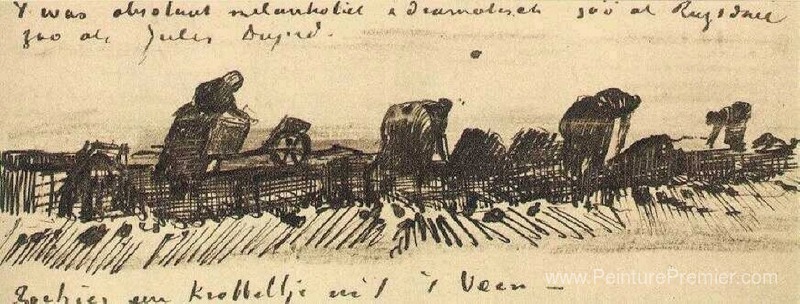 't was absoluut melankoliek & dramatisch zóó als Ruysdael
zoo als Jules Dupré.
Zoehier een krabbeltje uit 't Veen —
www.PeinturePremier.com